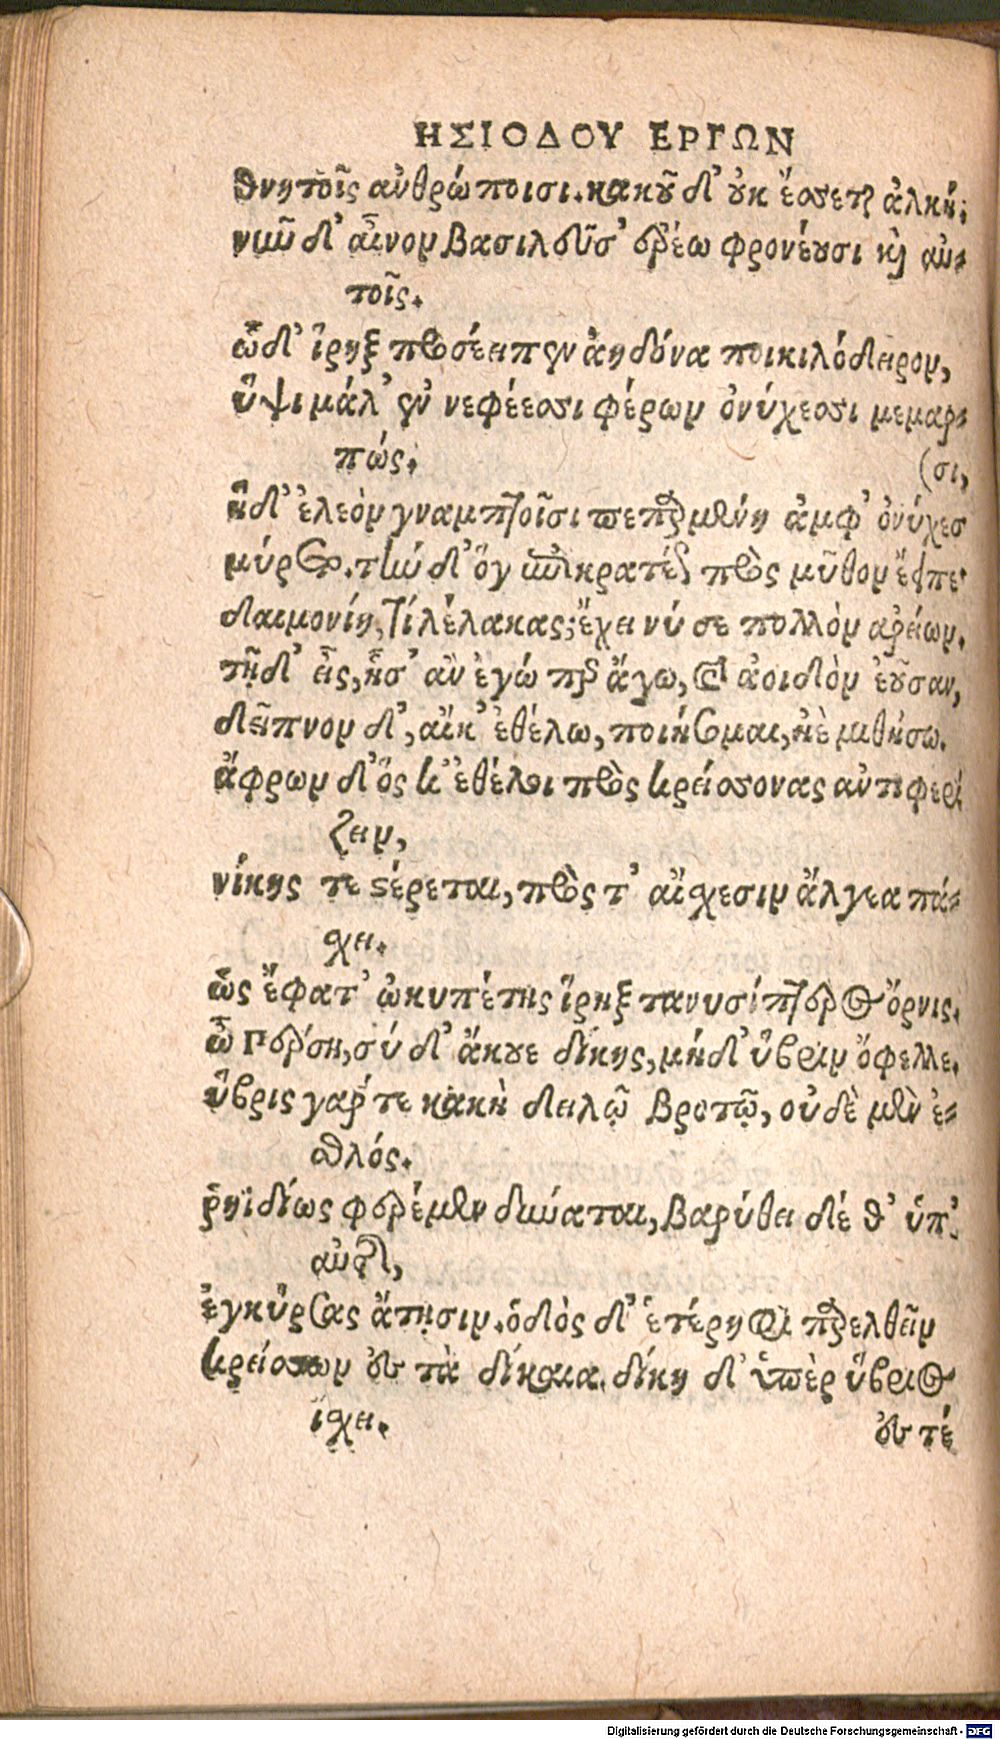 ΗΣΙΟΔΟΥ ΕΡΓΩΝ
θνητοῖς ἀνθρώποισι. κακοῦ δ' οὐκ ἔσσεται ἀλκή;
νῦν δ' αἶνον βασιλεῦσ' ἐρέω φρονέουσι καὶ αὐ-
τοῖς.
ὧδ' ἴρηξ προσέειπεν ἀηδόνα ποικιλόδειρον,
ὕψι μάλ' ἐν νεφέεσσι φέρων ὀνύχεσσι μεμαρ-
πώς.
(σι,
ἡ δ' ἐλεὸν γναμπτοῖσι πεπαρμένη ἀμφ' ὀνύχεσ
μύρετο. τὴν δ' ὅγ' ἐπικρατέως πρὸς μῦθον ἔειπε·
δαιμονίη, τί λέλακας; ἔχει νύ σε πολλὸν ἀρείων.
τῇ δ' εἶς, ᾗ σ' ἂν ἐγώ περ ἄγω, καὶ ἀοιδὸν ἐοῦσαν,
δεῖπνον δ', αἴκ' ἐθέλω, ποιήσομαι, ἠὲ μεθήσω.
ἄφρων δ' ὅς κ' ἐθέλοι πρὸς κρείσσονας ἀντιφερί
ζειν,
νίκης τε στέρεται, πρὸς τ' αἴσχεσιν ἄλγεα πά-
σχει.
ὣς ἔφατ' ὠκυπέτης ἴρηξ τανυσίπτερος ὄρνις.
ὦ Πέρση, σύ δ' ἄκουε δίκης, μὴ δ' ὕβριν ὄφελλε.
ὕβρις γάρ τε κακὴ δειλῷ βροτῷ, οὐδὲ μὲν ἐ-
σθλός.
ῥηϊδίως φερέμεν δύναται, βαρύθει δέ θ' ὑπ'
αὐτῆς,
ἐγκύρσας ἄτῃσιν. ὁδὸς δ' ἑτέρηφι παρελθεῖν
κρείσσων ἐς τὰ δίκαια. δίκη δ' ὑπὲρ ὕβριος
ἴσχει.
ἐς τέ
Digitalisierung gefördert durch die Deutsche Forschungsgemeinschaft - DFG